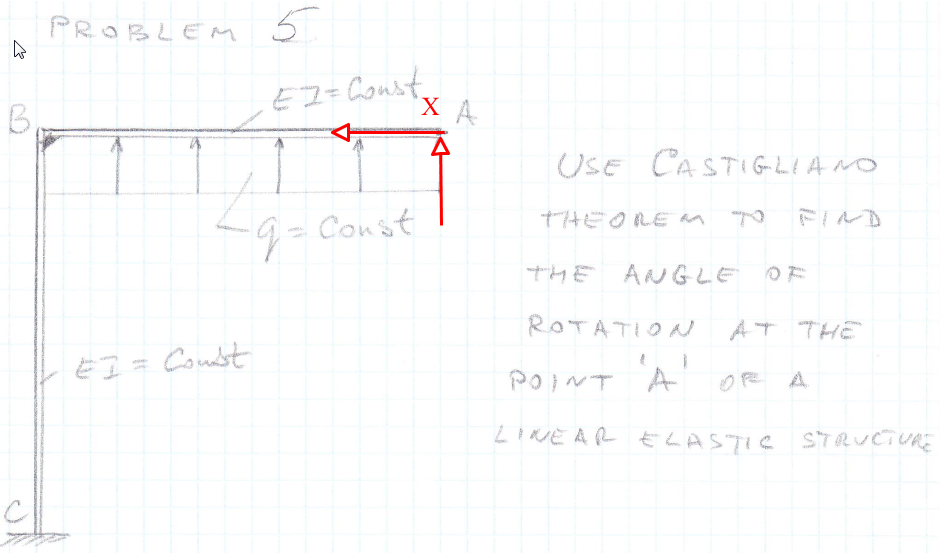 PROBLEM 5
EI = Const
X
B
A
q = Const
EI = Const
C
USE CASTIGLIANO
THEOREM TO FIND
THE ANGLE OF
ROTATION AT THE
POINT 'A' OF A
LINEAR ELASTIC STRUCTURE